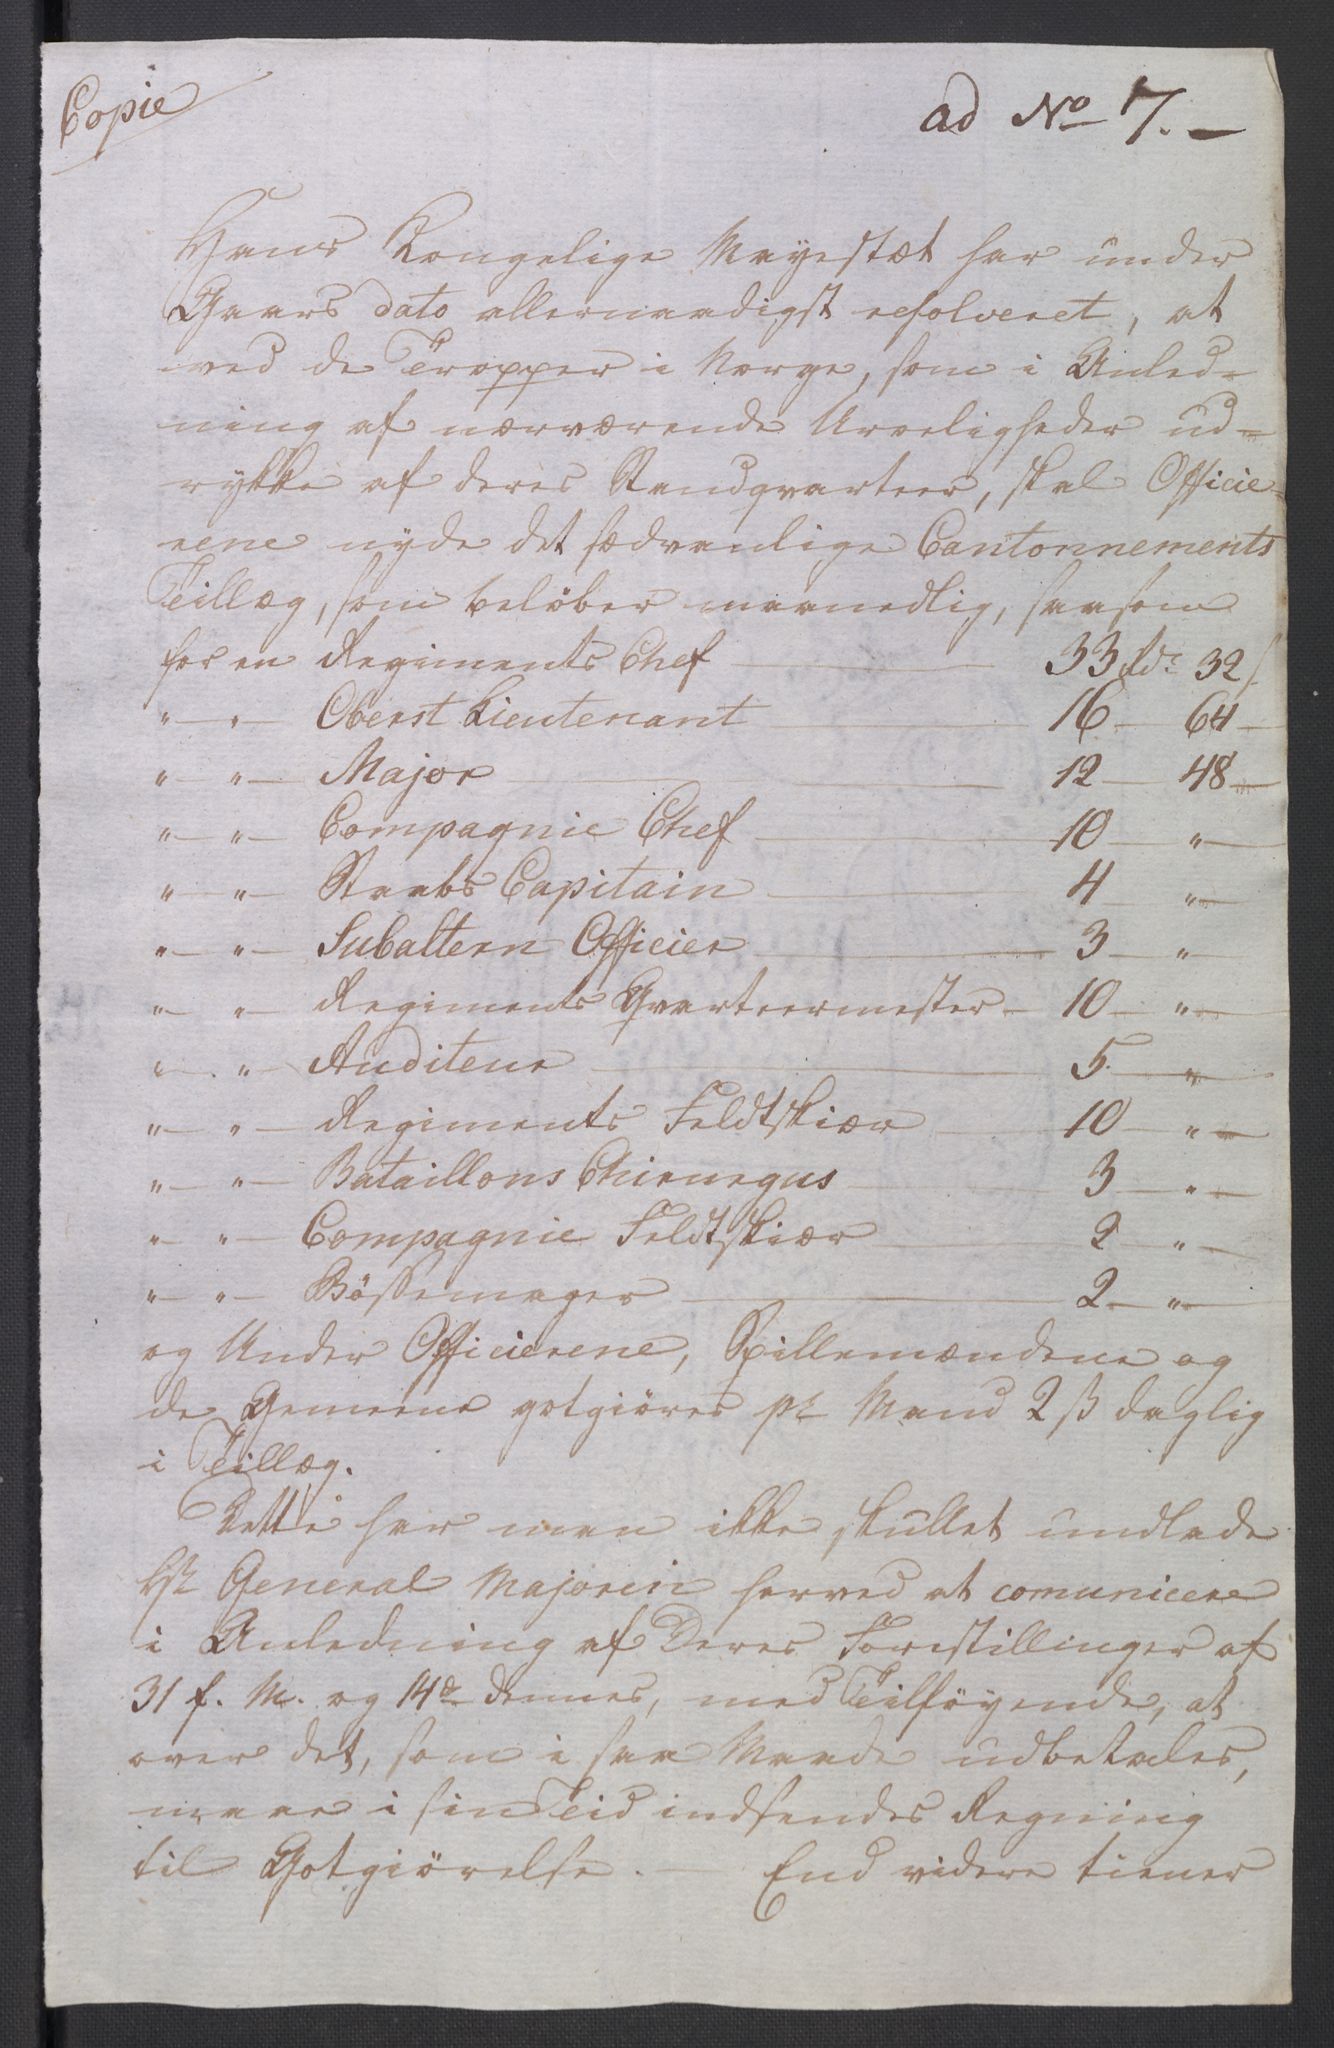 Copie
ad No 7. —
Hans Kongelige Mayestæt har under
Gaars dato allernaadigst resolveret, at
ved de Tropper i Norge, som i Anled-
ning af nærværende Uroeligheder ud-
rykke af deres Standqvarteer, skal Officie-
rene nyde det sædvanlige Cantonnements
Tillæg, som beløber maanedlig, saasom
for en Regiments Chef — 33 Rdr 32 s
" — " — Oberst Lieutenant — 16 — 64 —
" — " — Major — 12 — 48 —
" — " — Compagnie Chef — 10 — " —
" — " — Staabs Capitain — 4 — " —
" — " — Subaltern Officier — 3 — " —
" — " — Regiments Qvarteermester — 10 — " —
" — " — Auditeur — 5 — " —
" — " — Regiments Feldtskiær — 10 — " —
" — " — Bataillons Chirurgus — 3 — " —
" — " — Compagnie Feldtskiær — 2 — " —
" — " — Bøssemager — 2 — " —
og Under Officierene, Spillemændene og
de Gemeene gotgiøres pr Mand 2 ß daglig
i Tillæg.
Dette har man ikke skullet undlade
Hr General Majoren herved at comunicere
i Anledning af Deres Forestillinger af
31 f. M. og 14de dennes, med Tilføyende, at
over det, som i saa Maade udbetales,
maae i sin Tiid indsendes Regning
til Gotgiørelse. — End videre tiener